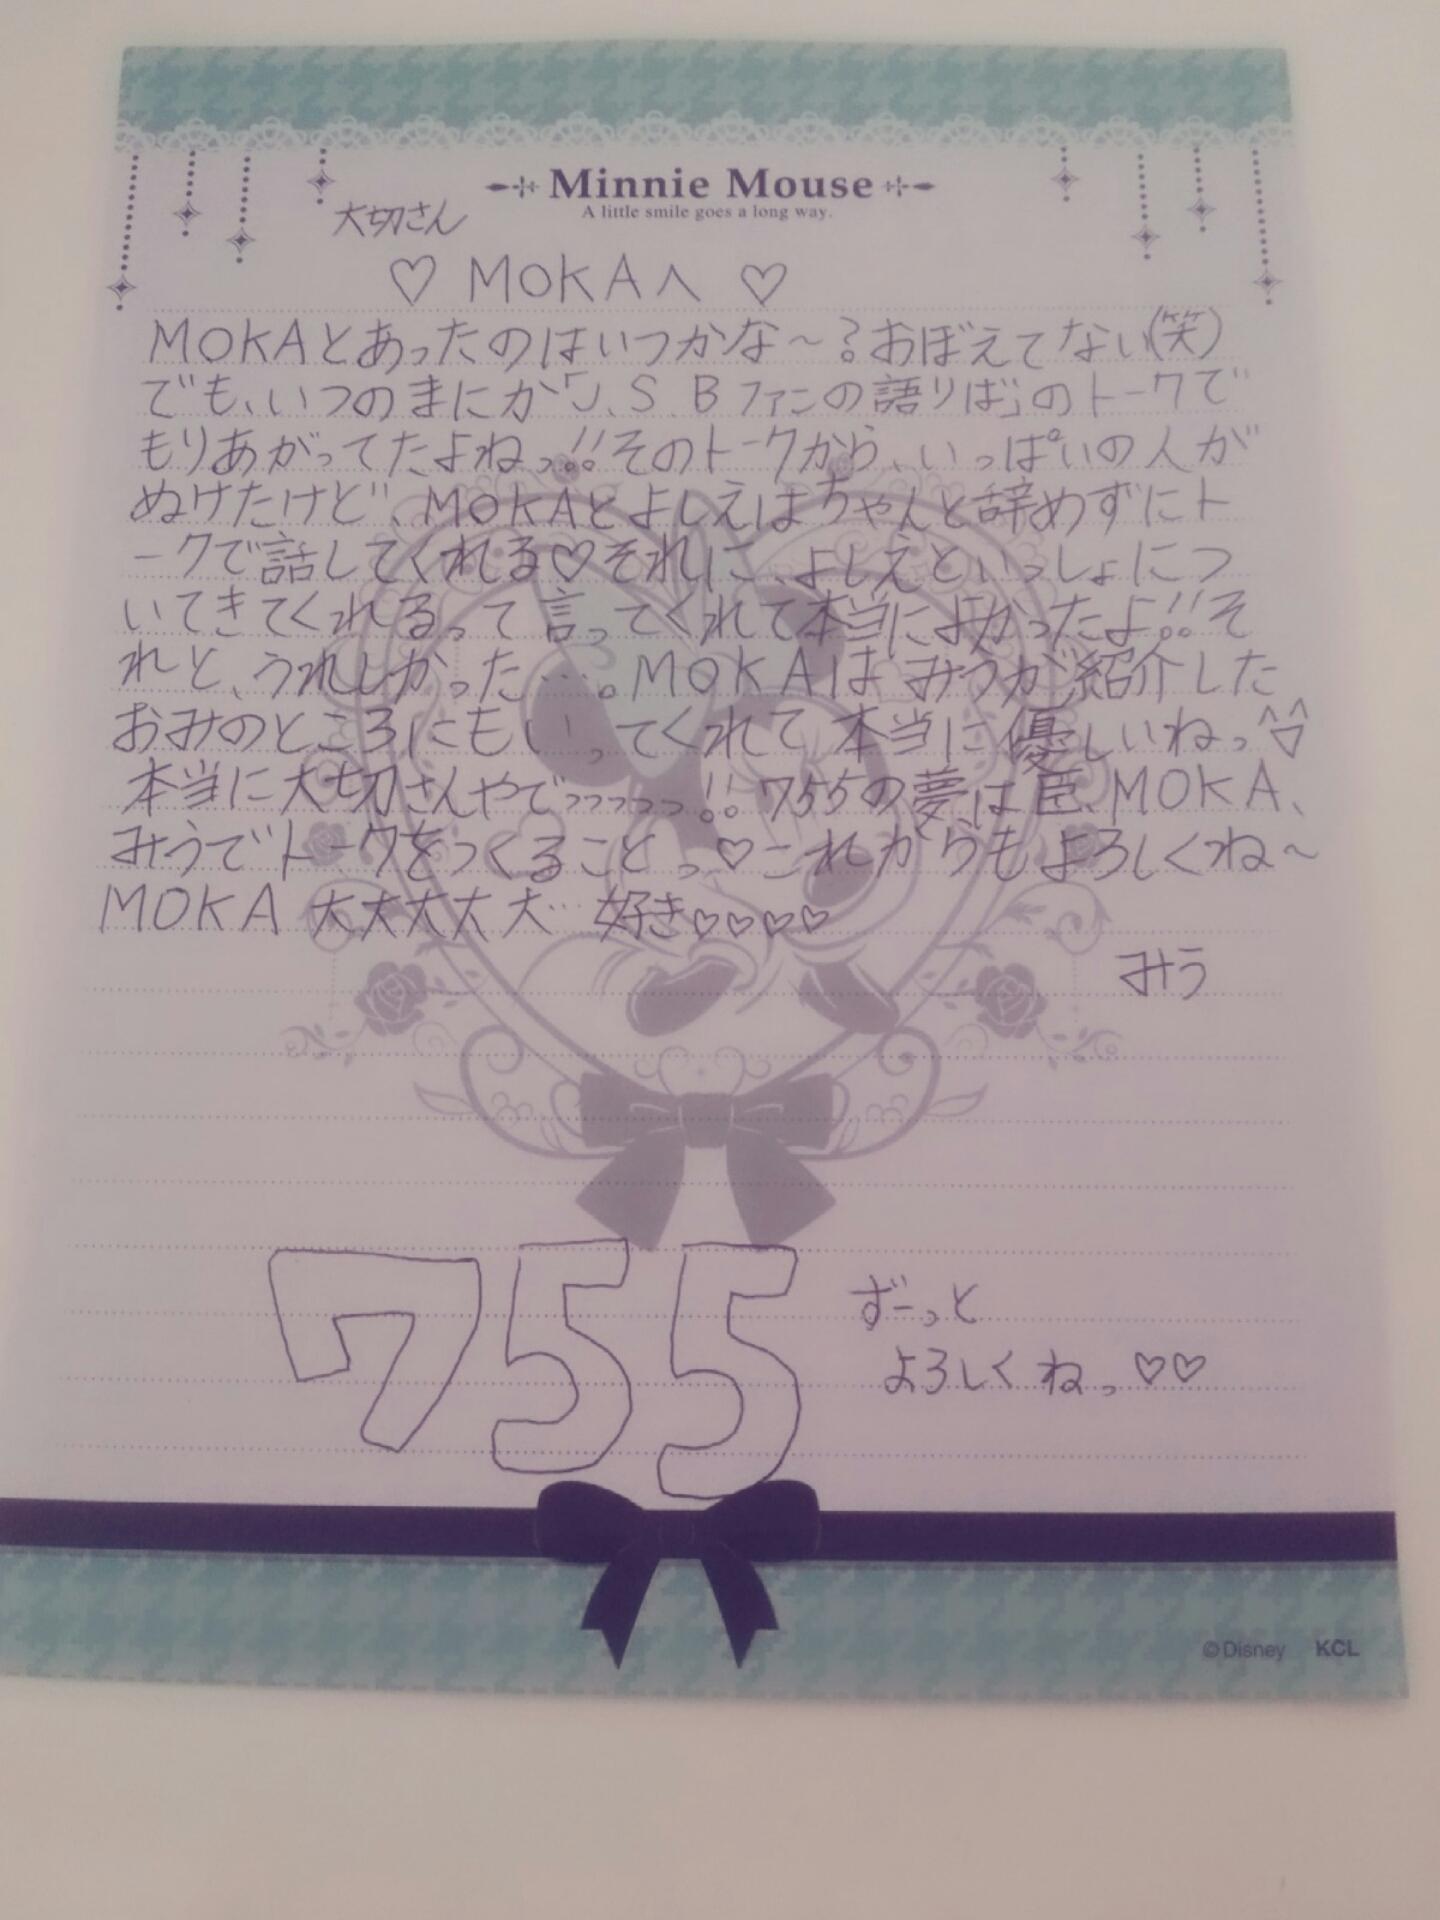 Minnie Mouse
A little smile goes a long way.
大切さん
♡ MOKAへ ♡
MOKAとあったのはいつかな～？おぼえてない(笑)
でも、いつのまにか「J.S.Bファンの語りば」のトークで
もりあがってたよねっ!!そのトークから、いっぱいの人が
ぬけたけど、MOKAとよしえはちゃんと辞めずにト
ークで話してくれる♡それに、よしえといっしょにつ
いてきてくれるって言ってくれて本当によかったよ!!そ
れと、うれしかった…。MOKAはみうが紹介した
おみのところにもいってくれて本当に優しいねっ
本当に大切さんやでっっっっっ!!755の夢は臣、MOKA、
みうでトークをつくることっ♡これからもよろしくね～
MOKA 大大大大大…好き♡♡♡♡
みう
755
ずーっと
よろしくねっ♡♡
©Disney KCL